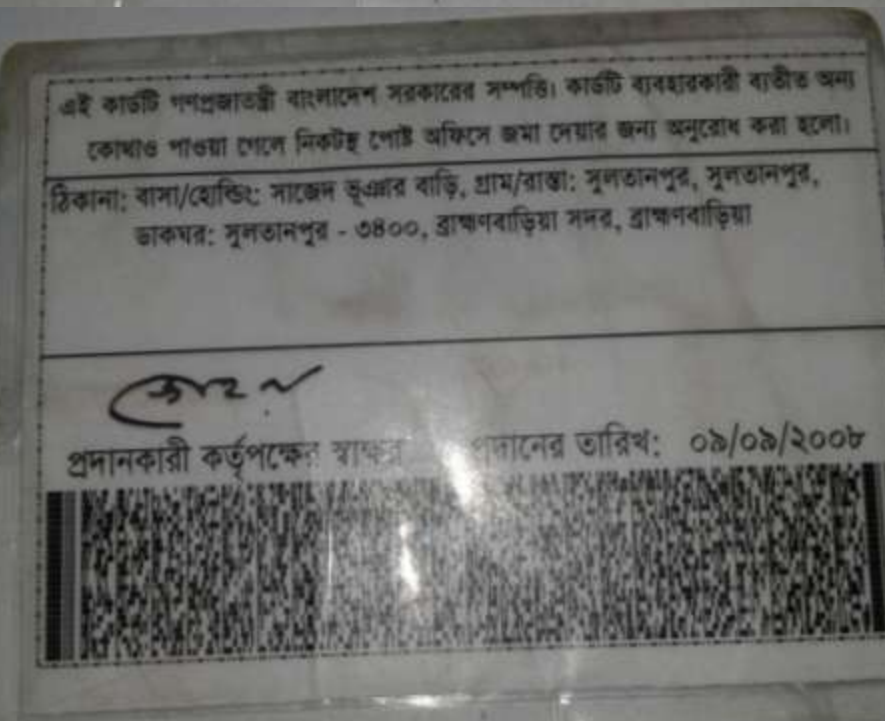 এই কার্ডটি গণপ্রজাতন্ত্রী বাংলাদেশ সরকারের সম্পত্তি। কার্ডটি ব্যবহারকারী ব্যতীত অন্য
কোথাও পাওয়া গেলে নিকটস্থ পোষ্ট অফিসে জমা দেয়ার জন্য অনুরোধ করা হলো।
ঠিকানা: বাসা/হোল্ডিং: সাজেদ ভূঞার বাড়ি, গ্রাম/রাস্তা: সুলতানপুর, সুলতানপুর,
ডাকঘর: সুলতানপুর - ৩৪০০, ব্রাহ্মণবাড়িয়া সদর, ব্রাহ্মণবাড়িয়া
প্রদানকারী কর্তৃপক্ষের স্বাক্ষর প্রদানের তারিখ: ০৯/০৯/২০০৮